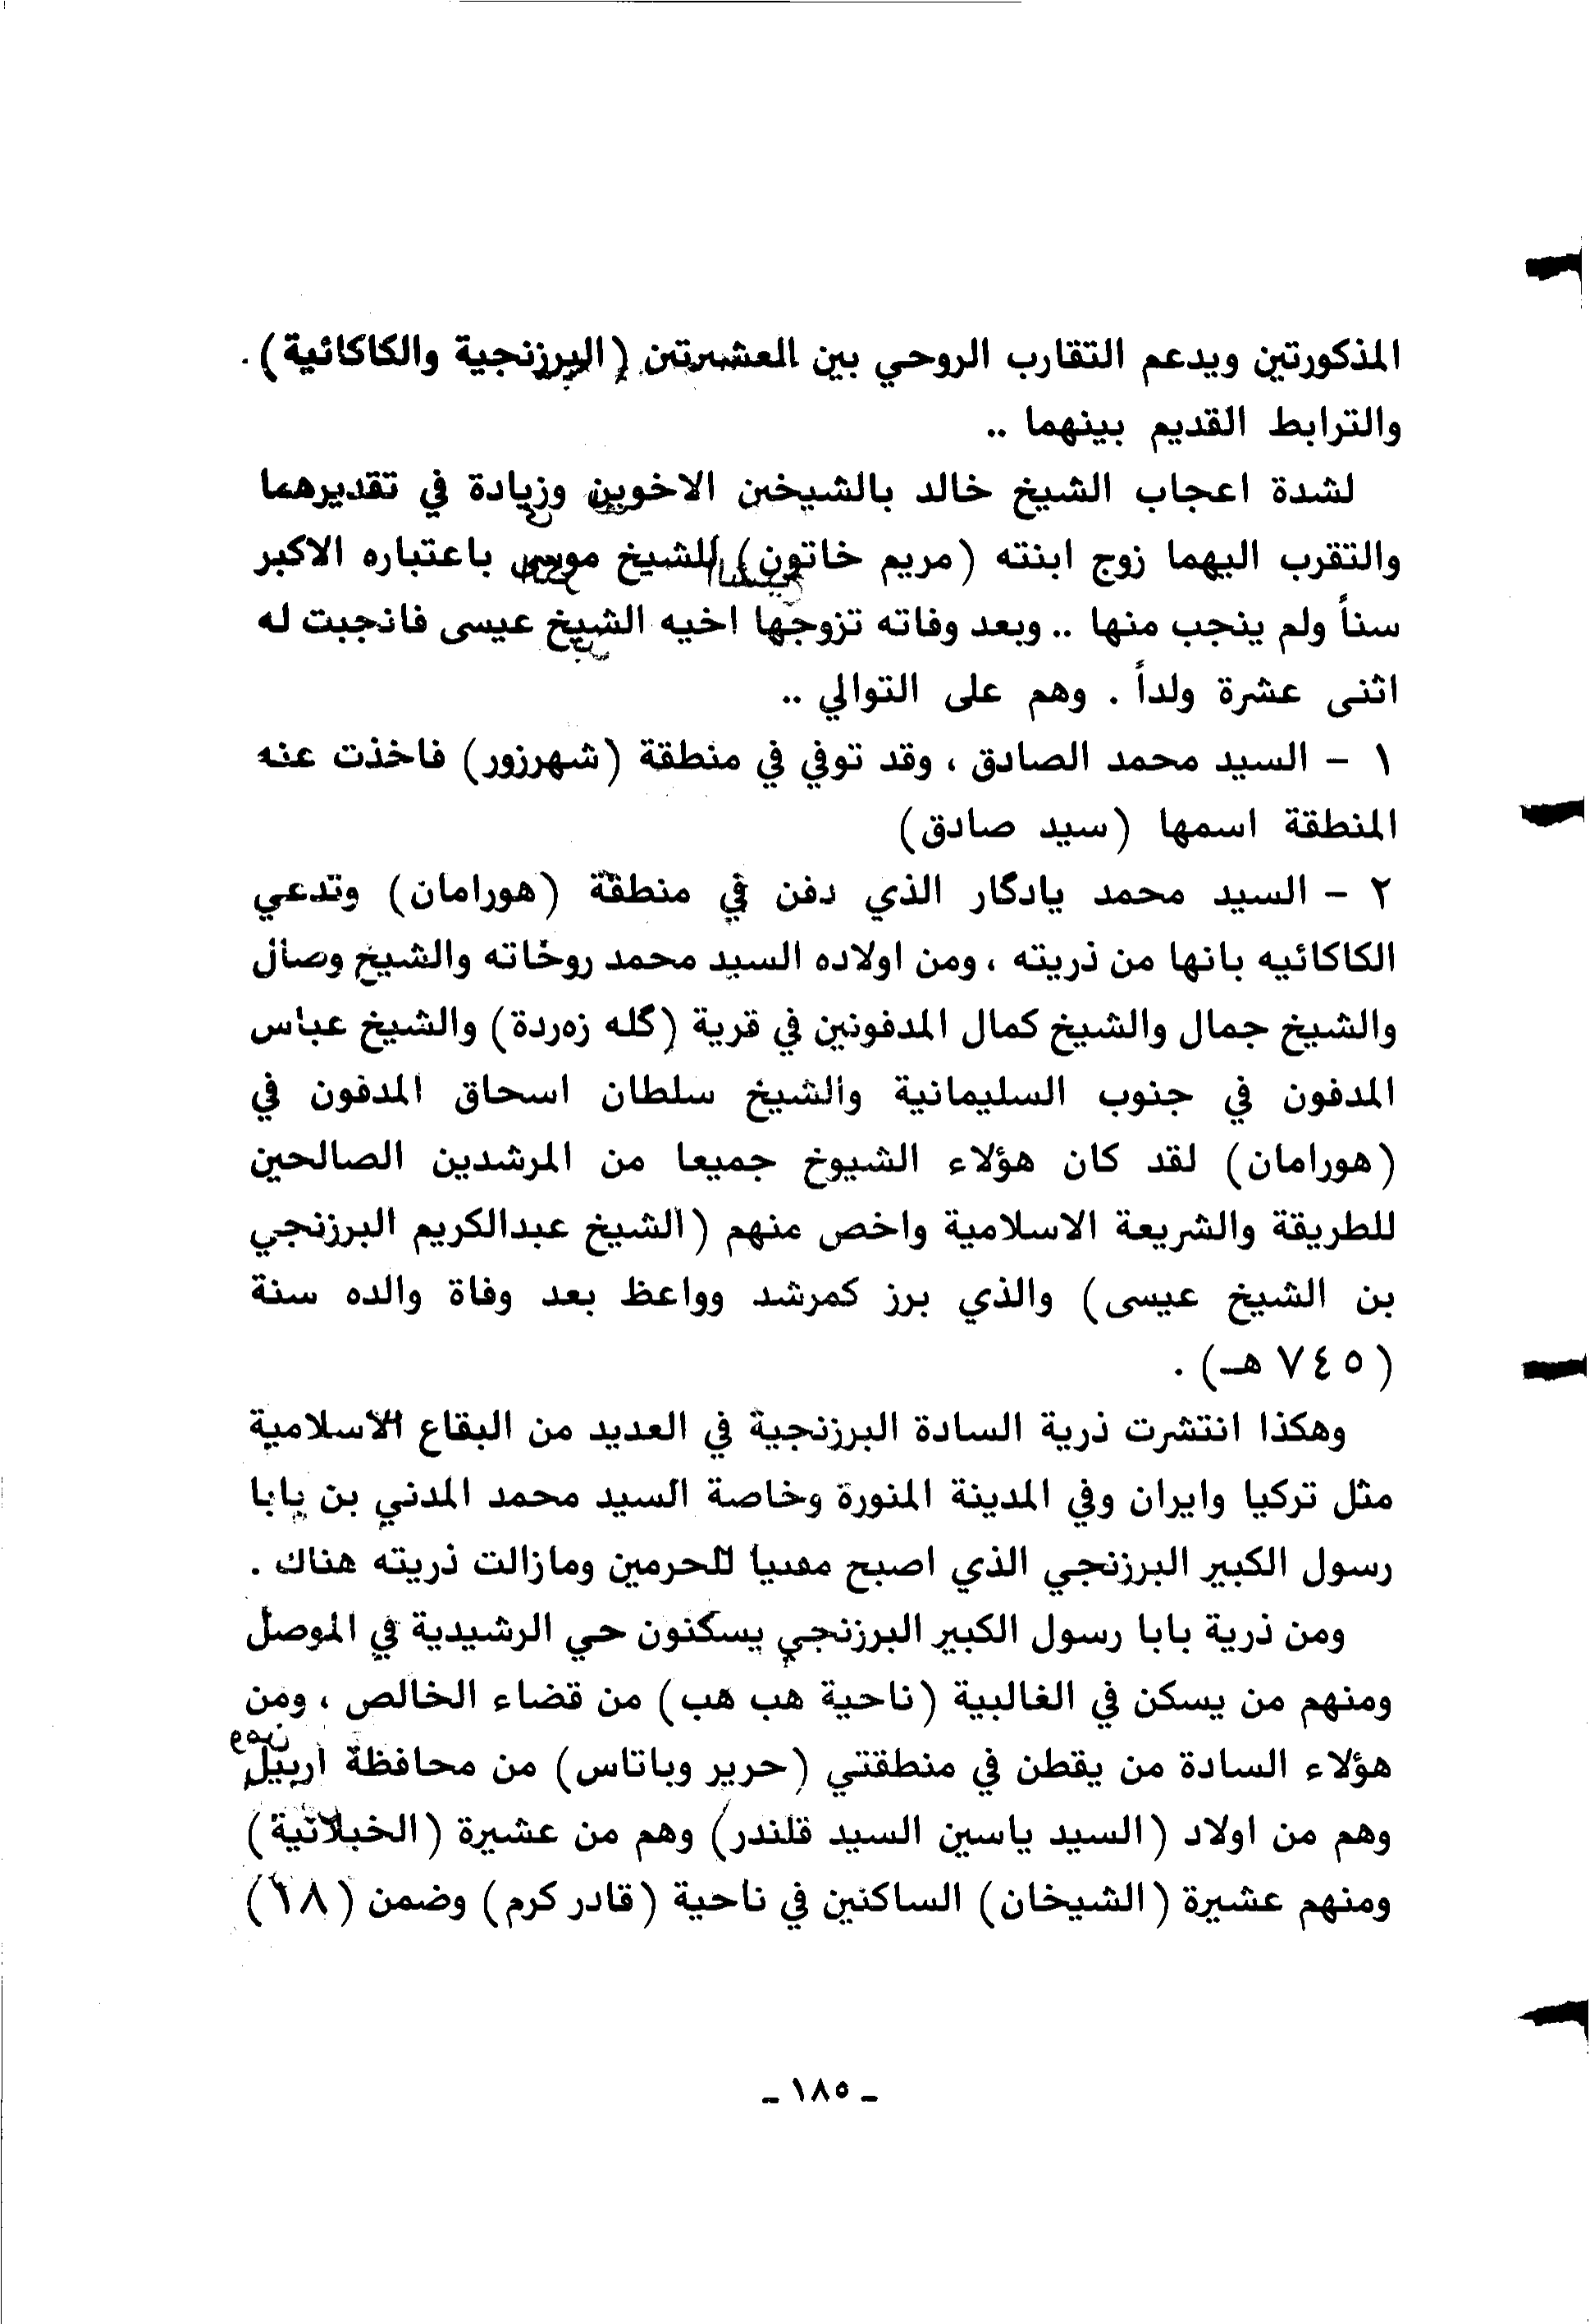 المذكورتين ويدعم التقارب الروحي بين العشيرتين (البرزنجية والكاكائية) .
والترابط القديم بينهما ..
لشدة اعجاب الشيخ خالد بالشيخين الاخوين وزيادة في تقديرهما
والتقرب اليهما زوج ابنته (مريم خاتون) للشيخ موسى باعتباره الاكبر
سناً ولم ينجب منها .. وبعد وفاته تزوجها اخيه الشيخ عيسى فانجبت له
اثنى عشرة ولداً . وهم على التوالي ..
١ - السيد محمد الصادق ، وقد توفي في منطقة (شهرزور) فاخذت عنه
المنطقة اسمها (سيد صادق)
٢ - السيد محمد يادگار الذي دفن في منطقة (هورامان) وتدعي
الكاكائيه بانها من ذريته ، ومن اولاده السيد محمد روخاته والشيخ وصال
والشيخ جمال والشيخ كمال المدفونين في قرية (گله زەردة) والشيخ عباس
المدفون في جنوب السليمانية والشيخ سلطان اسحاق المدفون في
(هورامان) لقد كان هؤلاء الشيوخ جميعا من المرشدين الصالحين
للطريقة والشريعة الاسلامية واخص منهم (الشيخ عبدالكريم البرزنجي
بن الشيخ عيسى) والذي برز كمرشد وواعظ بعد وفاة والده سنة
(٧٤٥ هـ) .
وهكذا انتشرت ذرية السادة البرزنجية في العديد من البقاع الاسلامية
مثل تركيا وايران وفي المدينة المنورة وخاصة السيد محمد المدني بن بابا
رسول الكبير البرزنجي الذي اصبح مفتيا للحرمين ومازالت ذريته هناك .
ومن ذرية بابا رسول الكبير البرزنجي يسكنون حي الرشيدية في الموصل
ومنهم من يسكن في الغالبية (ناحية هب هب) من قضاء الخالص ، ومن
هؤلاء السادة من يقطن في منطقتي (حرير وباتاس) من محافظة اربيل
وهم من اولاد (السيد ياسين السيد قلندر) وهم من عشيرة (الخبلائية)
ومنهم عشيرة (الشيخان) الساكنين في ناحية (قادر كرم) وضمن (١٨)
ـ ١٨٥ ـ